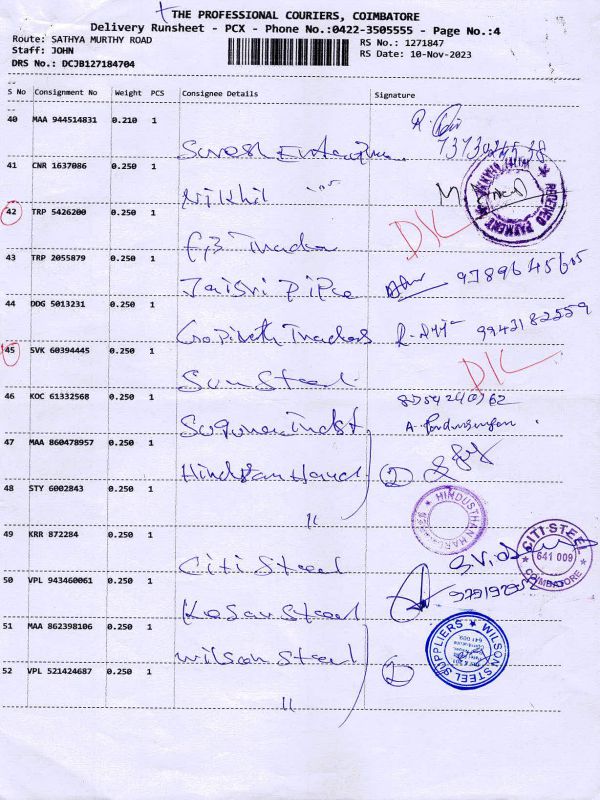 THE PROFESSIONAL COURIERS, COIMBATORE
Delivery Runsheet - PCX - Phone No.:0422-3505555 - Page No.:4
Route: SATHYA MURTHY ROAD
Staff: JOHN
DRS No.: DCJB127184704
RS No.: 1271847
RS Date: 10-Nov-2023
S No Consignment No Weight PCS Consignee Details Signature
40 MAA 944514831 0.210 1 Suresh
41 CNR 1637086 0.250 1 Nikhil
42 TRP 5426200 0.250 1 D/L
43 TRP 2055879 0.250 1 Jaisri Pipe 9789645605
44 DDG 5013231 0.250 1 Gopinath Traders 9942182559
45 SVK 60394445 0.250 1 Sun Steel D/L
46 KOC 61332568 0.250 1
47 MAA 860478957 0.250 1 Hindustan Hard 2
48 STY 6002843 0.250 1 11
HINDUSTHAN
49 KRR 872284 0.250 1 Citi Steel
CITI STEEL
641 009
COIMBATORE
50 VPL 943460061 0.250 1 Kesar Steel
51 MAA 862398106 0.250 1 Wilson Steel
52 VPL 521424687 0.250 1 11 2
WILSON STEEL SUPPLIERS
RECEIVED PAYMENT